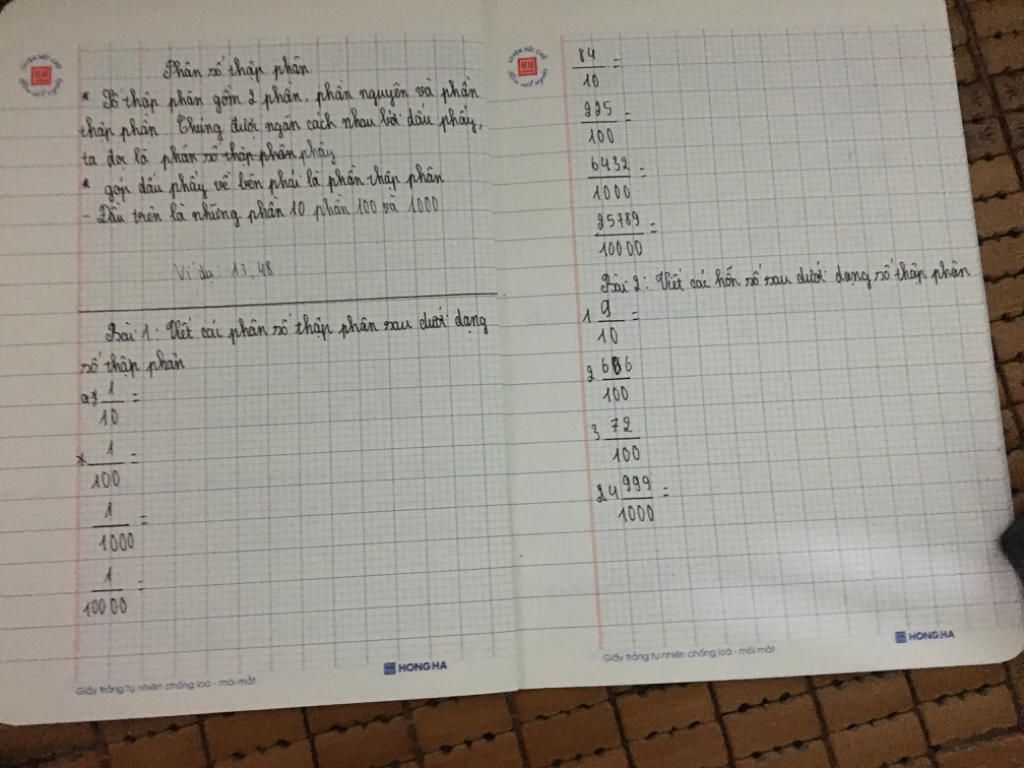 Phân số thập phân
* Số thập phân gồm 2 phần, phần nguyên và phần
thập phân. Chúng được ngăn cách nhau bởi dấu phẩy,
ta đọc là phân số thập phân phẩy
* gọp dấu phẩy về bên phải là phần thập phân
- Dấu trên là những phần 10 phần 100 và 1000
Ví dụ: 13,48
Bài 1: Viết các phân số thập phân sau dưới dạng
số thập phân
a* 1/10 =
* 1/100 =
1/1000 =
1/10000 =
HONG HA
Giấy trắng tự nhiên chống loá - mỏi mắt
84/10 =
225/100 =
6432/1000 =
25789/10000 =
Bài 2: Viết các hỗn số sau dưới dạng số thập phân
1 9/10 =
2 66/100
3 72/100
24 999/1000 =
HONG HA
Giấy trắng tự nhiên chống loá - mỏi mắt